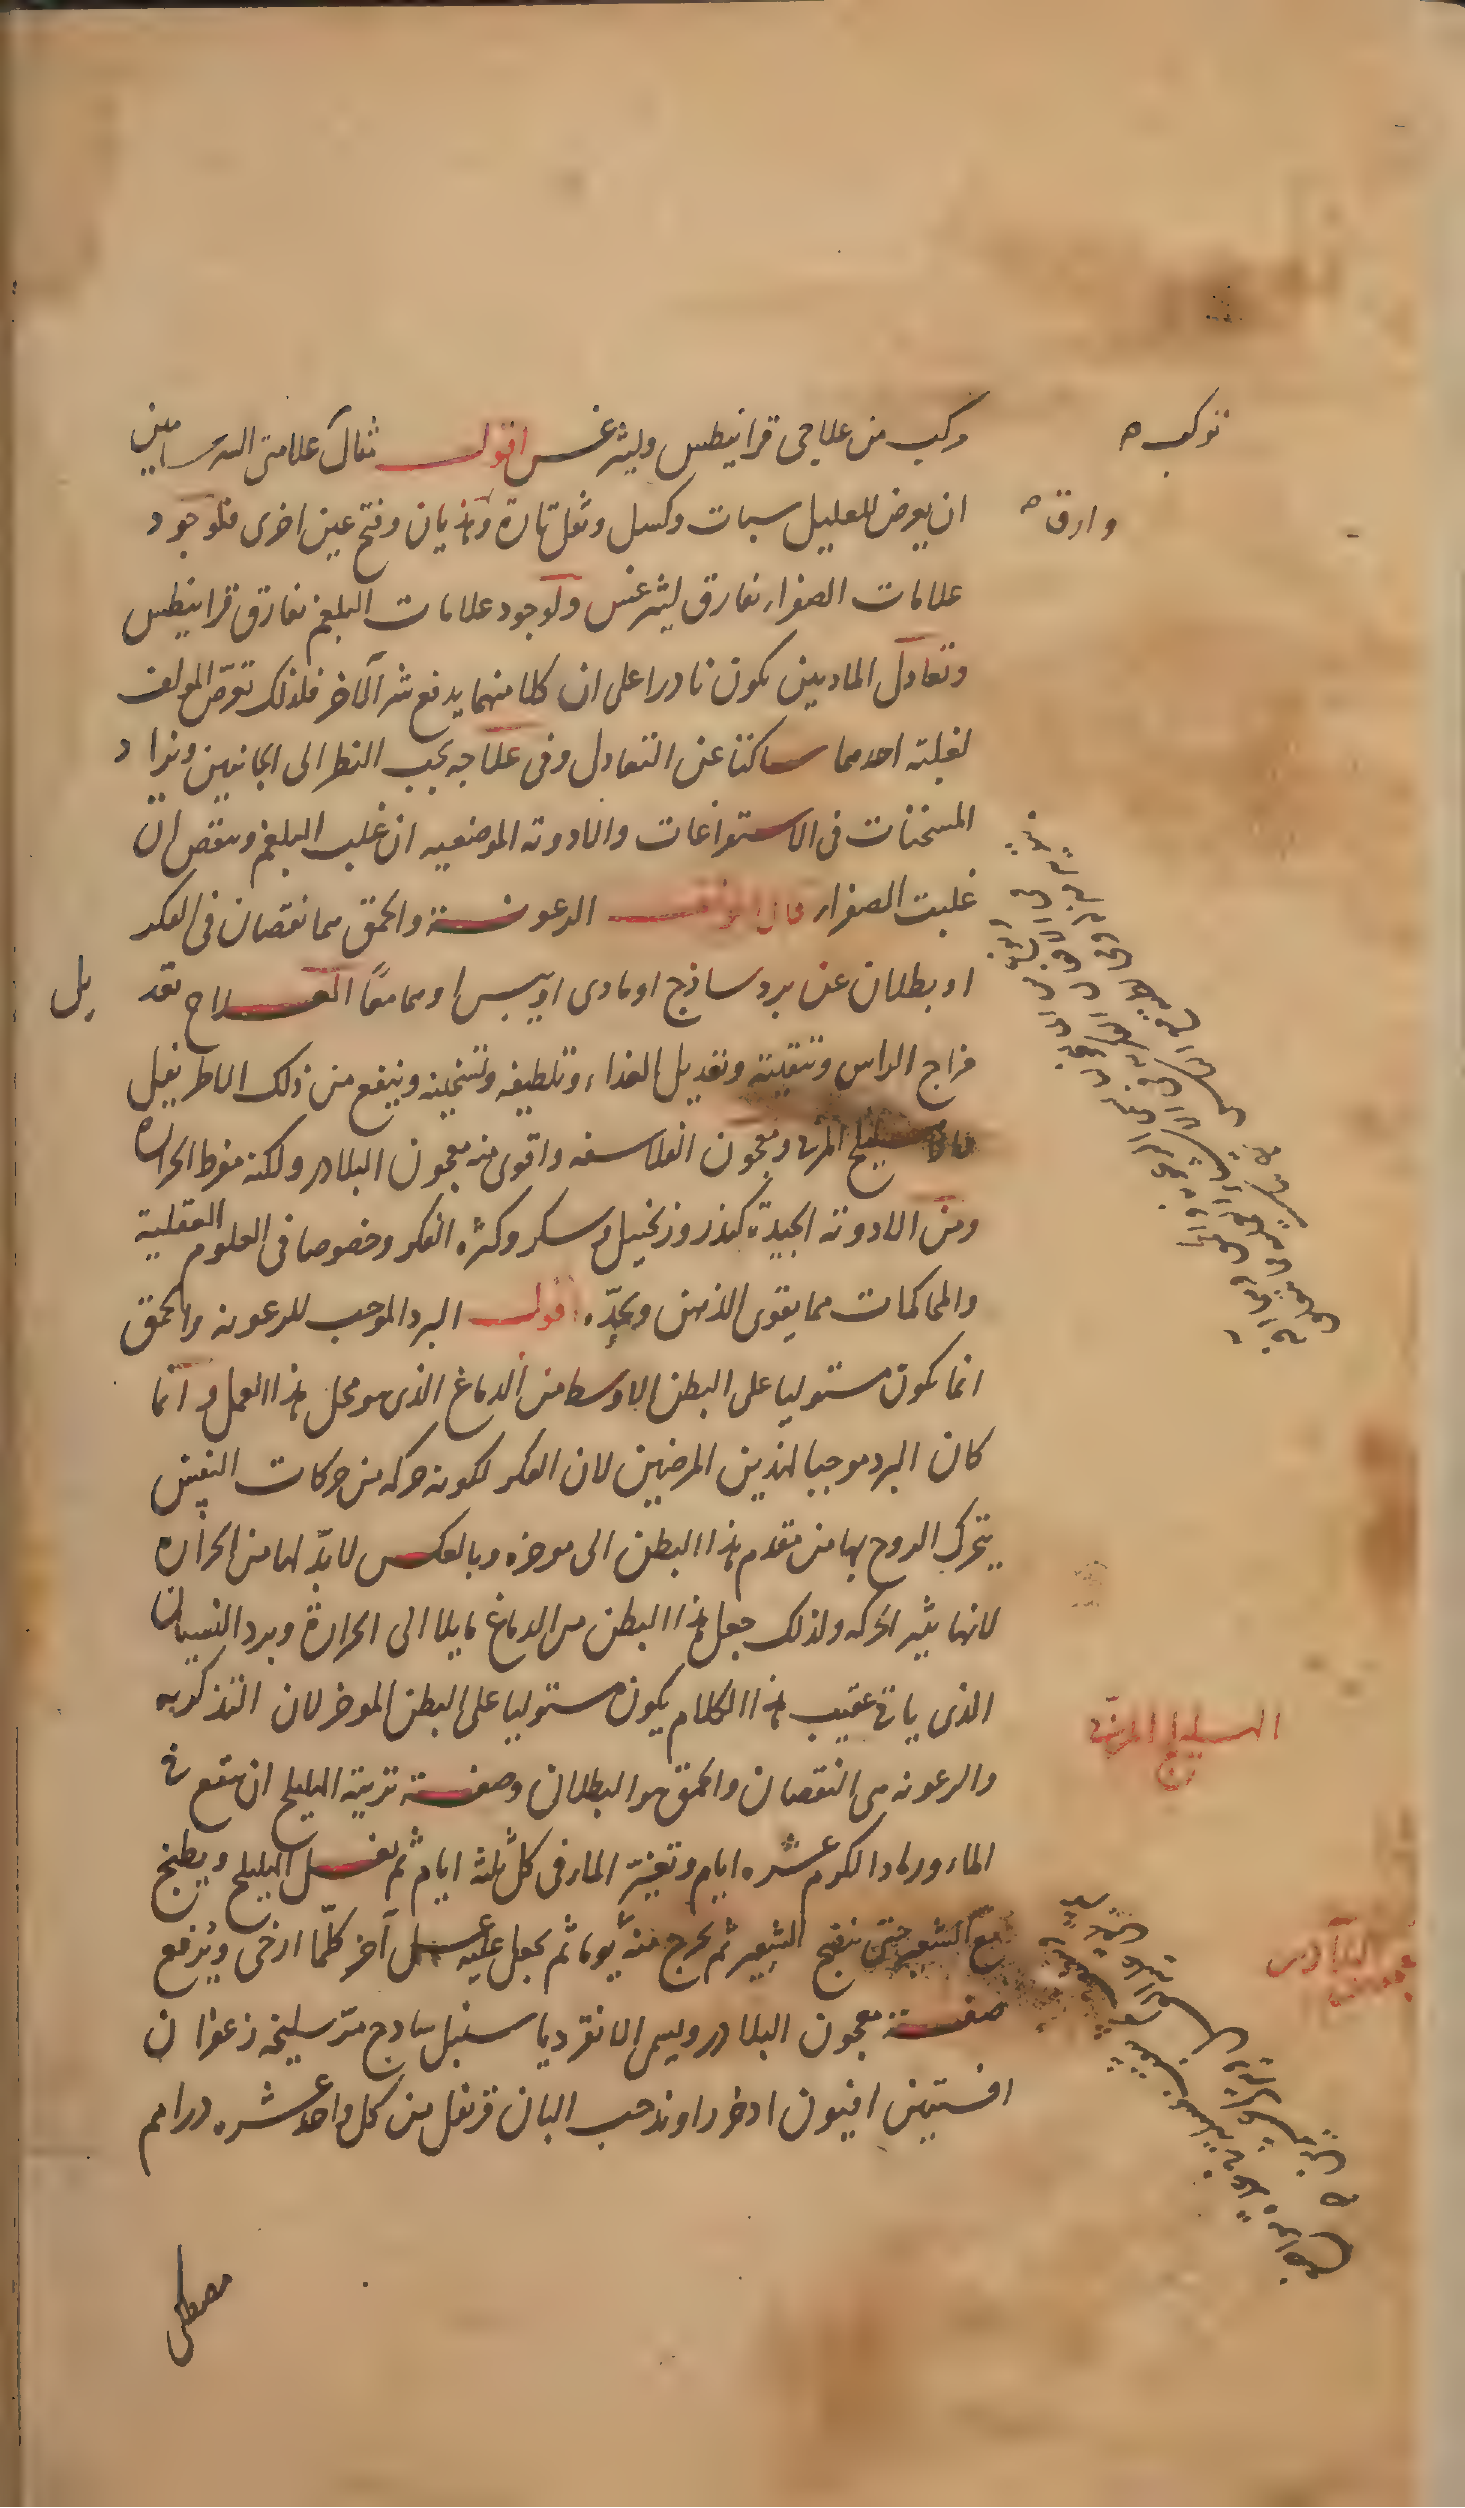 مركب من علاجى قرانيطس وليثرغس اقول مثال علامتى السرسامين
ان يعرض للعليل سبات وكسل وثقل تارة وهذيان وفتح عين اخرى فلوجود
علامات الصفراء نفارق ليثرغس ولوجود علامات البلغم نفارق قرانيطس
وتعادل المادتين يكون نادرا على ان كلا منهما يدفع شر الآخر فلذلك تعرض المولف
لغلبة احدهما ساكتا عن التعادل وفى علاجه يجب النظر الى الجانبين ويزاد
المسخنات فى الاستفراغات والادوية الموضعيه ان غلب البلغم وينقص ان
غلبت الصفراء قال المولف الرعونة والحمق هما نقصان فى الفكر
او بطلان عن برد ساذج او مادى او يبس او هما معًا العلاج تعد
يل
مزاج الراس وتنقيته وتعديل الغذاء وتلطيفه وتسخينه وينفع من ذلك الاطريفل
والاهليلج المربى ومعجون الفلاسفه واقوى منه معجون البلادر ولكنه مفرط الحرارة
ومن الادوية الجيدة كندر وزنجبيل وسكر وكثره الفكر وخصوصا فى العلوم العقلية
والمحاكمات مما يقوى الذهن ويحدّه اقول البرد الموجب للرعونه والحمق
انما يكون مستوليا على البطن الاوسط من الدماغ الذى هو محل هذا العمل و انما
كان البرد موجبا لهذين المرضين لان الفكر لكونه حركه من حركات النفس
يتحرك الروح بها من مقدم هذا البطن الى موخره وبالعكس لابدّ لها من الحرارة
لانها يثير الحركه ولذلك جعل هذا البطن من الدماغ مايلا الى الحرارة وبرد النسيان
الذى ياتى عقيب هذا الكلام يكون مستوليا على البطن الموخر لان التذكر به
والرعونه هى النقصان والحمق هو البطلان وصفة تربية الهليلج ان ينقع فى
الماء ورماد الكرم عشره ايام وتغير الماء فى كل ثلثه ايام ثم يغسل الهليلج ويطبخ
مع الشعير حتى ينضج الشعير ثم يخرج منه يوما ثم يجعل عليه عسل آخر كلما ارخى ويرفع
صفة معجون البلادر ويسمى الانقرديا سنبل سادج مر سليخه زعفران
افسنتين افتيون اذخر راوند حب البان قرنفل من كل واحد عشره دراهم
مصطكى
تركيب
وارق
الهليلج المربى
معجون البلادر